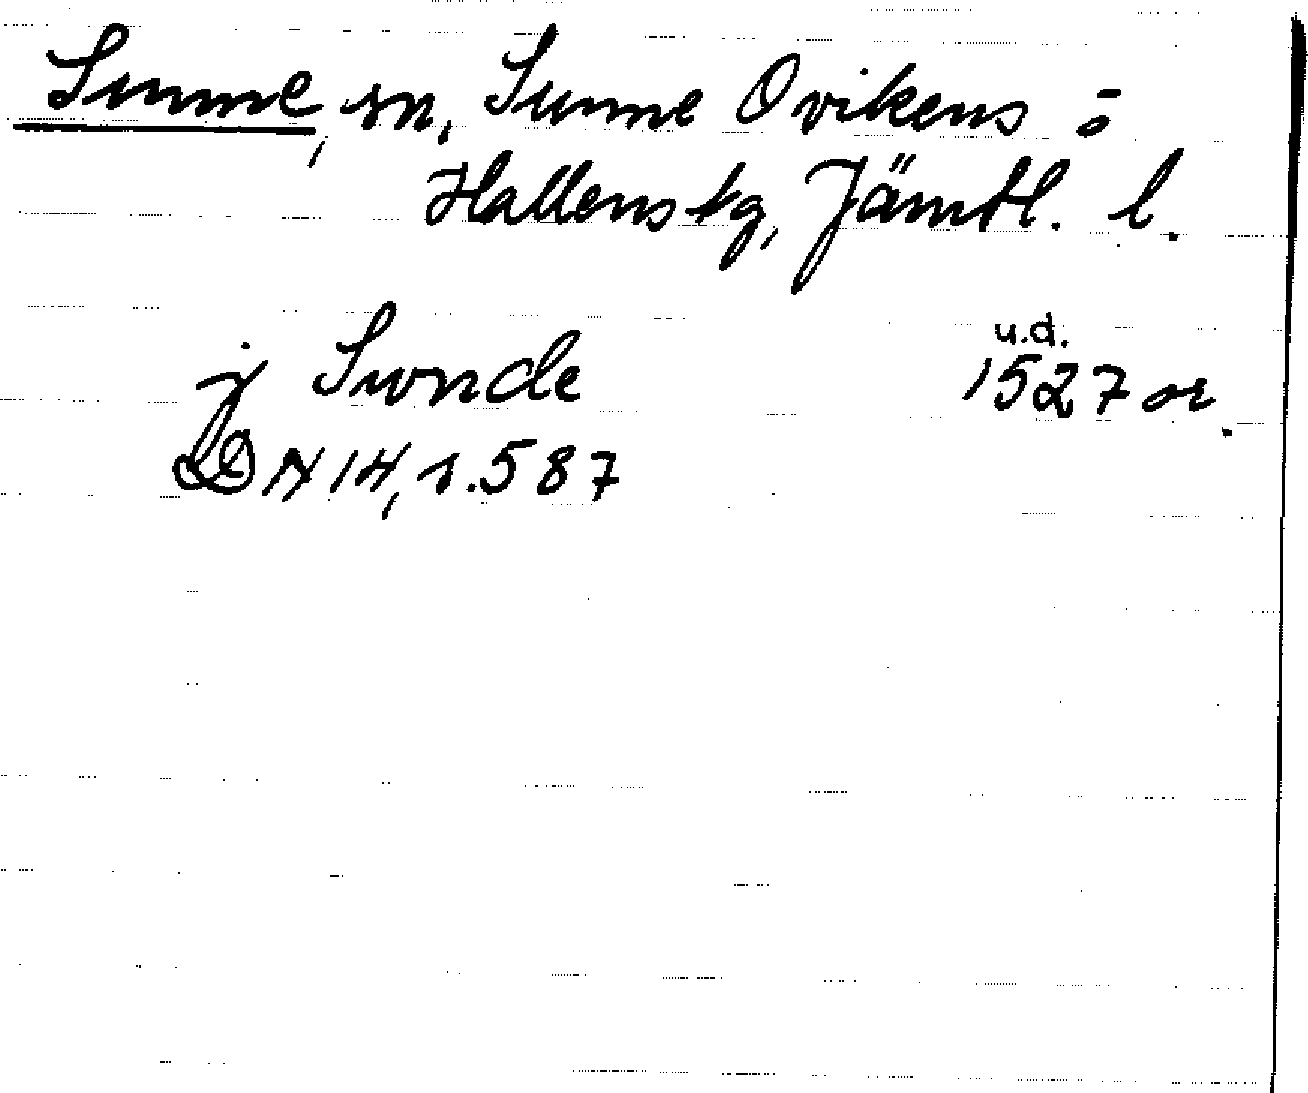 Sunne, sn, Sunne Ovikens o
Hallens tg, Jämtl. l.
u.d.
j Sunde 1527 or.
DN 14, s. 587